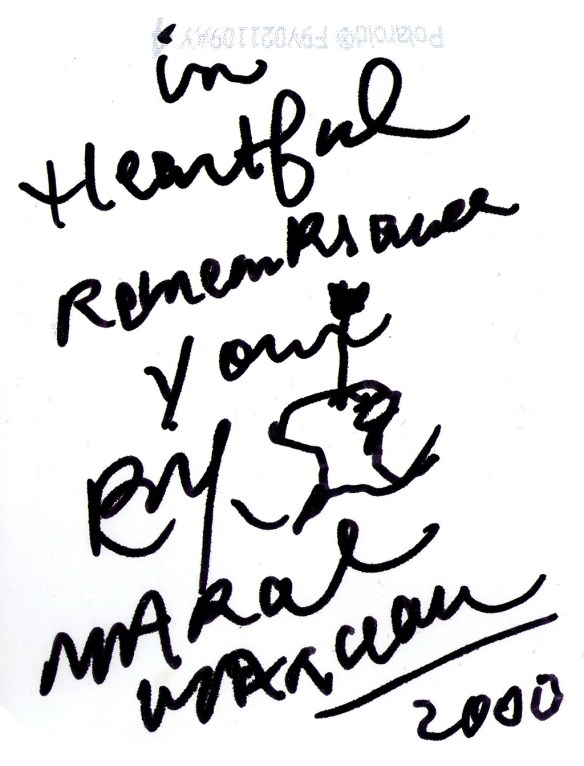 Polaroid®
in
Heartful
Remembrance
your
Bip
MARCEL
MARCEAU
2000